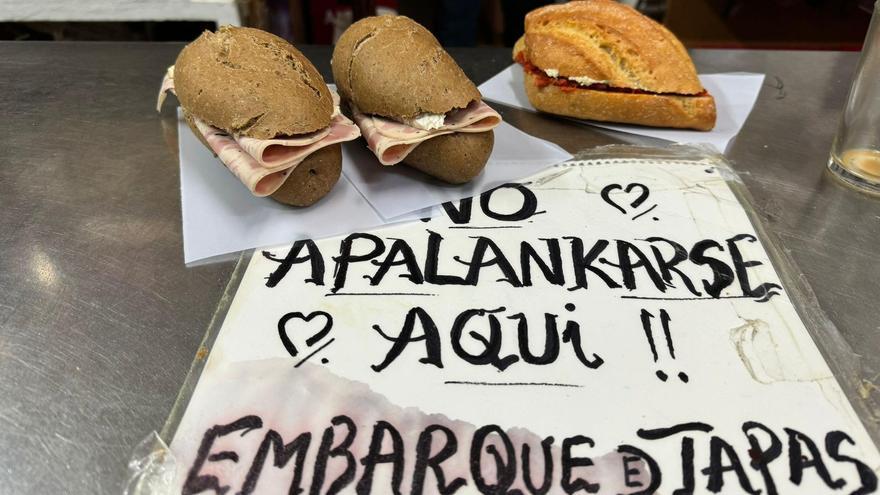 NO
APALANKARSE
AQUI !!
EMBARQUE DE TAPAS